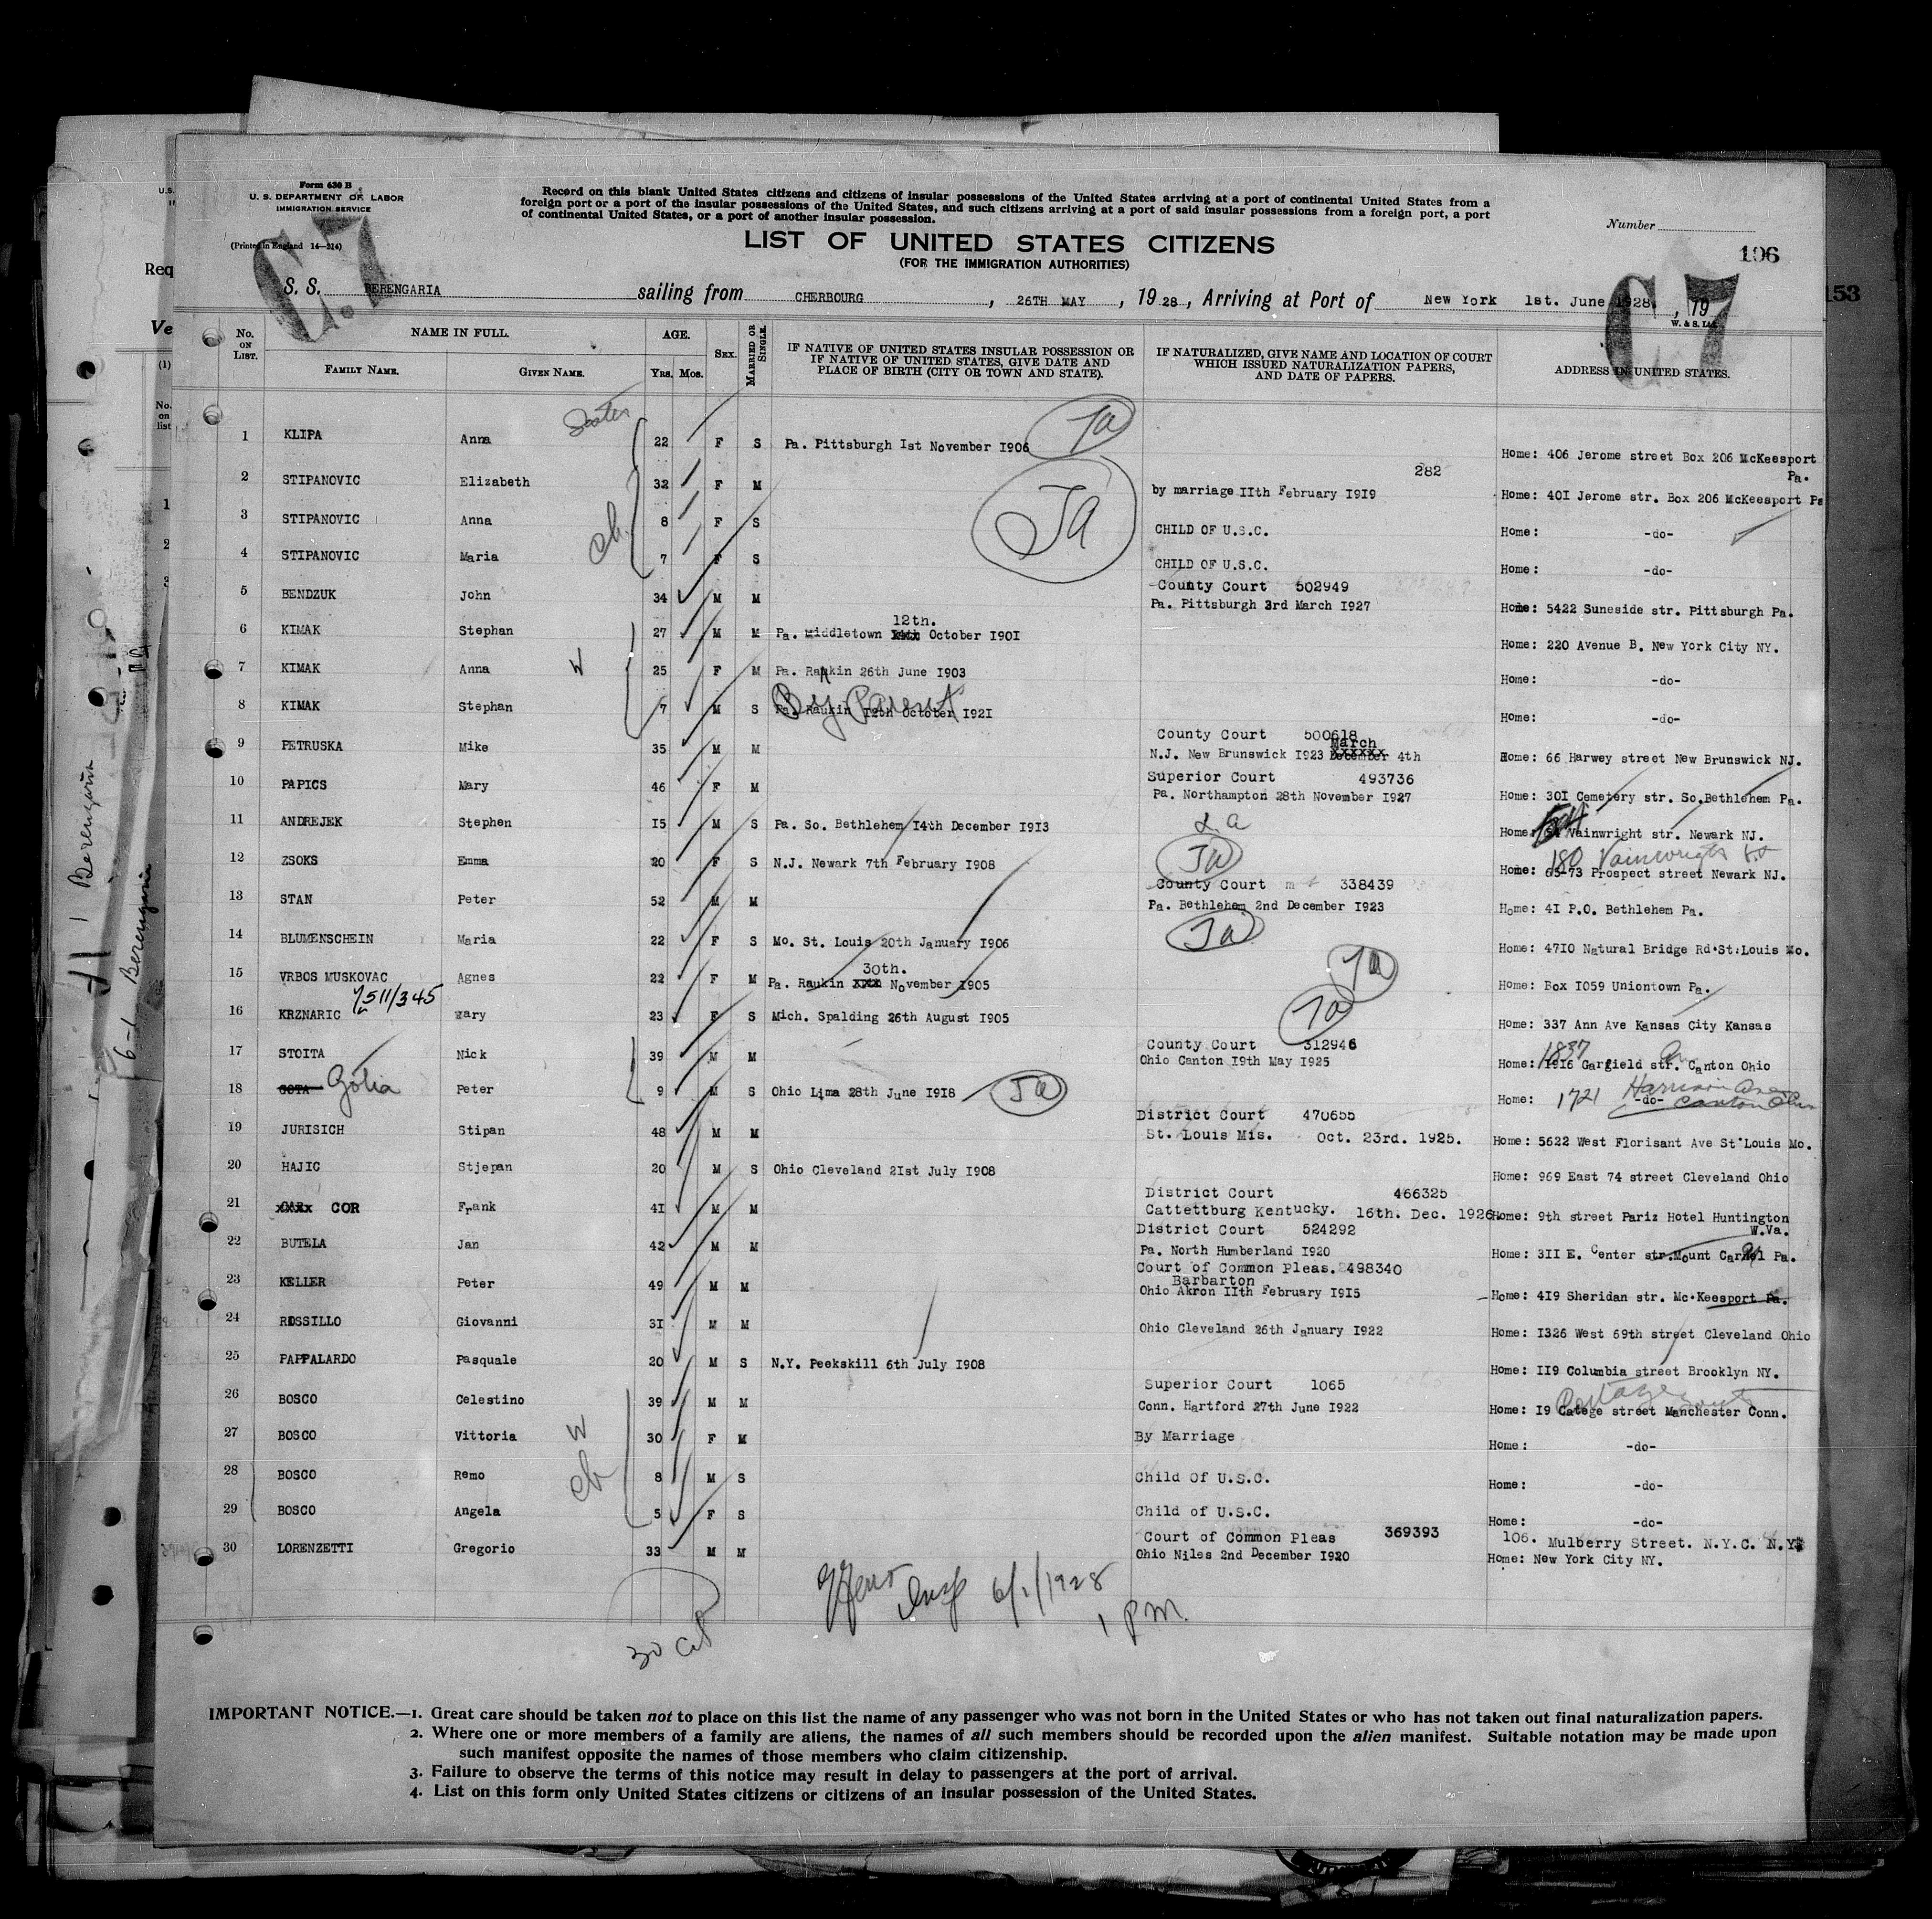 Form 630 B
U. S. DEPARTMENT OF LABOR
IMMIGRATION SERVICE
(Printed in England 14—214)
Record on this blank United States citizens and citizens of insular possessions of the United States arriving at a port of continental United States from a
foreign port or a port of the insular possessions of the United States, and such citizens arriving at a port of said insular possessions from a foreign port, a port
of continental United States, or a port of another insular possession.
Number
LIST OF UNITED STATES CITIZENS
(FOR THE IMMIGRATION AUTHORITIES)
106
C.7
C 7
153
S. S. BERENGARIA sailing from CHERBOURG, 26TH MAY, 19 28, Arriving at Port of New York 1st. June 1928, 19
W. & S. Ltd.
No. ON LIST. NAME IN FULL. AGE. SEX. MARRIED OR SINGLE. IF NATIVE OF UNITED STATES INSULAR POSSESSION OR IF NATIVE OF UNITED STATES, GIVE DATE AND PLACE OF BIRTH (CITY OR TOWN AND STATE). IF NATURALIZED, GIVE NAME AND LOCATION OF COURT WHICH ISSUED NATURALIZATION PAPERS, AND DATE OF PAPERS. ADDRESS IN UNITED STATES.
FAMILY NAME. GIVEN NAME. YRS. MOS.
1 KLIPA Anna 22 F S Pa. Pittsburgh Ist November I906 Home: 406 Jerome street Box 206 McKeesport Pa.
282
2 STIPANOVIC Elizabeth 32 F M by marriage IIth February I9I9 Home: 40I Jerome str. Box 206 McKeesport Pa
3 STIPANOVIC Anna 8 F S CHILD OF U.S.C. Home: -do-
4 STIPANOVIC Maria 7 F S CHILD OF U.S.C. Home: -do-
ch.
County Court 502949
5 BENDZUK John 34 M M Pa. Pittsburgh 3rd March I927 Home: 5422 Suneside str. Pittsburgh Pa.
12th.
6 KIMAK Stephan 27 M M Pa. Middletown October I90I Home: 220 Avenue B. New York City NY.
7 KIMAK Anna W 25 F M Pa. Rankin 26th June I903 Home: -do-
By Parent
8 KIMAK Stephan 7 M S Pa. Raukin I2th October I92I Home: -do-
County Court 500618
March
9 PETRUSKA Mike 35 M M N.J. New Brunswick I923 December 4th Home: 66 Harwey street New Brunswick NJ.
Superior Court 493736
10 PAPICS Mary 46 F M Pa. Northampton 28th November I927 Home: 30I Cemetery str. So.Bethlehem Pa.
11 ANDREJEK Stephen I5 M S Pa. So. Bethlehem I4th December I9I3 Home: Vainwright str. Newark NJ.
180 Vainwright
12 ZSOKS Emma 20 F S N.J. Newark 7th February I908 Home: 65-73 Prospect street Newark NJ.
County Court 338439
13 STAN Peter 52 M M Pa. Bethlehem 2nd December I923 Home: 4I P.O. Bethlehem Pa.
14 BLUMENSCHEIN Maria 22 F S Mo. St. Louis 20th January I906 Home: 47I0 Natural Bridge Rd.St.Louis Mo.
30th.
15 VRBOS MUSKOVAC Agnes 22 F M Pa. Raukin xxx November I905 Home: Box I059 Uniontown Pa.
511/345
16 KRZNARIC Mary 23 F S Mich. Spalding 26th August I905 Home: 337 Ann Ave Kansas City Kansas
County Court 312946
17 STOITA Nick 39 M M Ohio Canton I9th May I925 Home: 1837 I9I6 Garfield str. Canton Ohio
18 GOTA Golia Peter 9 M S Ohio Lima 28th June I9I8 Home: 1721 Harrison Ave -do- Canton Ohio
District Court 470655
19 JURISICH Stipan 48 M M St. Louis Mis. Oct. 23rd. 1925. Home: 5622 West Florisant Ave St.Louis Mo.
20 HAJIC Stjepan 20 M S Ohio Cleveland 2Ist July I908 Home: 969 East 74 street Cleveland Ohio
District Court 466325
21 COR Frank 4I M M Cattettburg Kentucky. 16th. Dec. 1926 Home: 9th street Pariz Hotel Huntington W.Va.
District Court 524292
22 BUTELA Jan 42 M M Pa. North Humberland I920 Home: 3II E. Center str.Mount Carmel Pa.
Court of Common Pleas. 498340
Barbarton
23 KELLER Peter 49 M M Ohio Akron IIth February I9I5 Home: 4I9 Sheridan str. Mc.Keesport Pa.
24 ROSSILLO Giovanni 3I M M Ohio Cleveland 26th January I922 Home: I326 West 69th street Cleveland Ohio
25 PAPPALARDO Pasquale 20 M S N.Y. Peekskill 6th July I908 Home: II9 Columbia street Brooklyn NY.
Superior Court 1065
Cottage
26 BOSCO Celestino 39 M M Conn. Hartford 27th June I922 Home: I9 Catege street Manchester Conn.
27 BOSCO Vittoria W 30 F M By Marriage Home: -do-
28 BOSCO Remo ch 8 M S Child of U.S.C. Home: -do-
29 BOSCO Angela 5 F S Child of U.S.C. Home: -do-
Court of Common Pleas 369393 106. Mulberry Street. N.Y.C. N.Y.
30 LORENZETTI Gregorio 33 M M Ohio Niles 2nd December I920 Home: New York City NY.
Insp 6/1/1928
1 P.M.
IMPORTANT NOTICE.—1. Great care should be taken not to place on this list the name of any passenger who was not born in the United States or who has not taken out final naturalization papers.
2. Where one or more members of a family are aliens, the names of all such members should be recorded upon the alien manifest. Suitable notation may be made upon
such manifest opposite the names of those members who claim citizenship.
3. Failure to observe the terms of this notice may result in delay to passengers at the port of arrival.
4. List on this form only United States citizens or citizens of an insular possession of the United States.